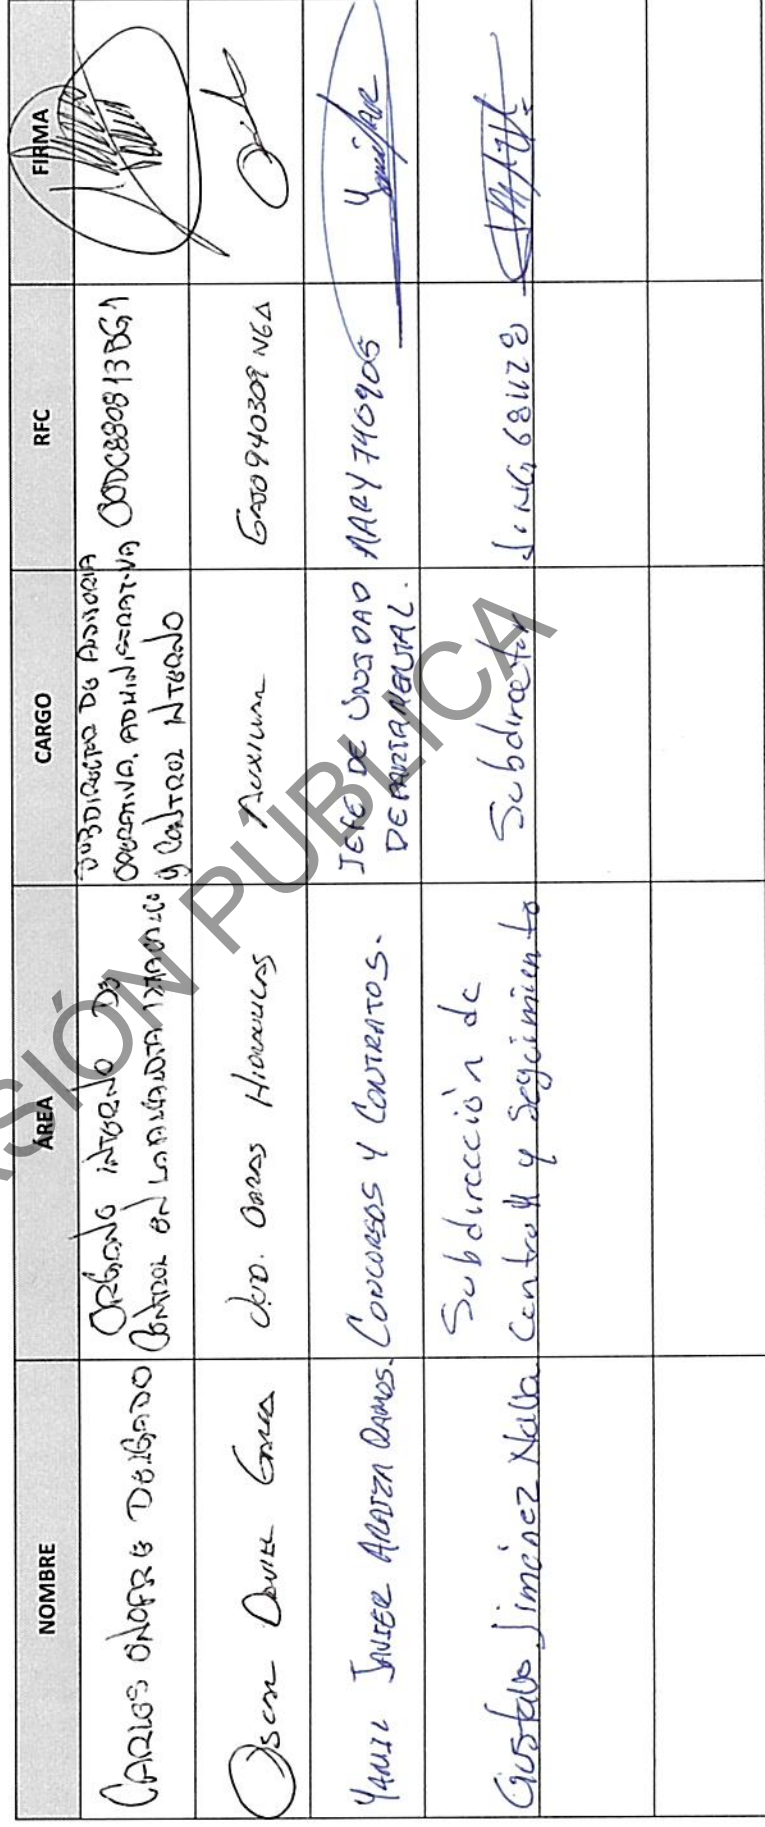 NOMBRE
ÁREA
CARGO
RFC
FIRMA
CARLOS ONOFRE DELGADO
ORGANO INTERNO DE
CONTROL EN LA ALCALDIA IZTAPALAPA
SUBDIRECTOR DE AUDITORIA
OPERATIVA, ADMINISTRATIVA
Y CONTROL INTERNO
OODC880813BG1
OSCAR DANIEL
JUD. OBRAS HIDRAULICAS
AUXILIAR
940309
YAMIL JAVIER ARAIZA RAMOS.
CONCURSOS Y CONTRATOS.
JEFE DE UNIDAD
DEPARTAMENTAL.
AARY740905
Gustavo Jimenez Nava
Subdirección de
Control y Seguimiento
Subdirector
JING681128
VERSIÓN PÚBLICA